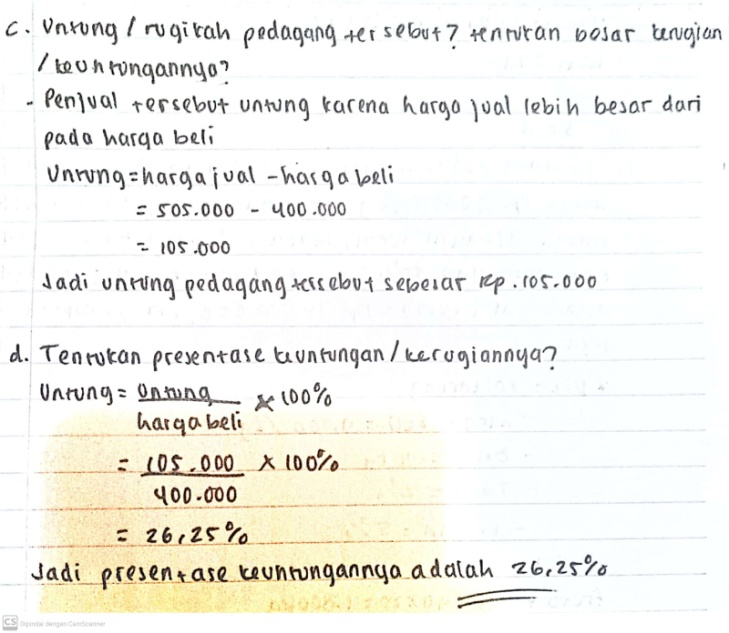 c. Untung / rugikah pedagang tersebut? tentukan besar kerugian
/ keuntungannya?
- Penjual tersebut untung karena harga jual lebih besar dari
pada harga beli
Untung = harga jual - harga beli
= 505.000 - 400.000
= 105.000
Jadi untung pedagang tersebut sebesar Rp. 105.000
d. Tentukan presentase keuntungan / kerugiannya?
Untung = Untung × 100%
harga beli
= 105.000 × 100%
400.000
= 26,25%
Jadi presentase keuntungannya adalah 26,25%
CS Dipindai dengan CamScanner